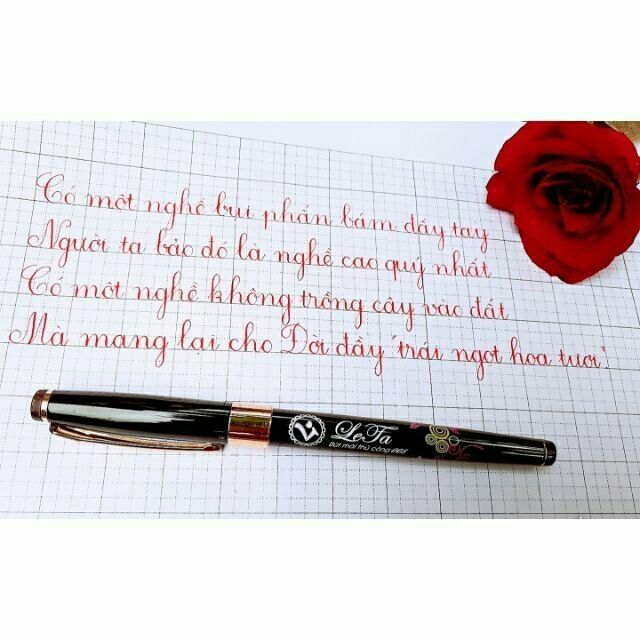 Có một nghề bụi phấn bám đầy tay
Người ta bảo đó là nghề cao quý nhất
Có một nghề không trồng cây vào đất
Mà mang lại cho Đời đầy "trái ngọt hoa tươi".
LeTa
Bút mài thủ công 68S